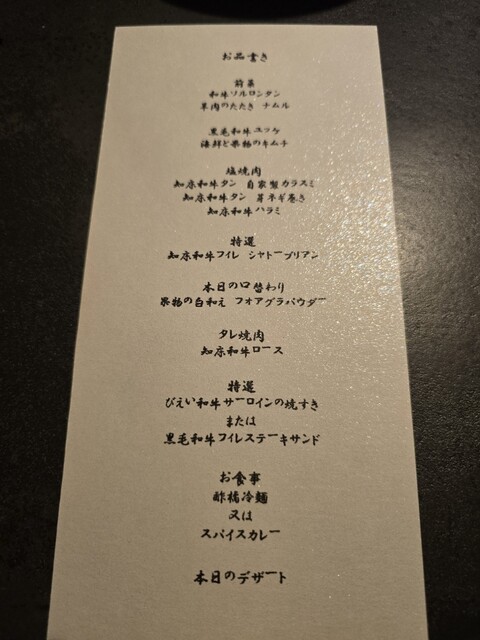 お品書き
前菜
和牛ソルロンタン
羊肉のたたき ナムル
黒毛和牛ユッケ
海鮮と果物のキムチ
塩焼肉
知床和牛タン 自家製カラスミ
知床和牛タン 芽ネギ巻き
知床和牛ハラミ
特選
知床和牛フィレ シャトーブリアン
本日の口替わり
果物の白和え フォアグラパウダー
タレ焼肉
知床和牛ロース
特選
びえい和牛サーロインの焼すき
または
黒毛和牛フィレステーキサンド
お食事
酢橘冷麺
又は
スパイスカレー
本日のデザート